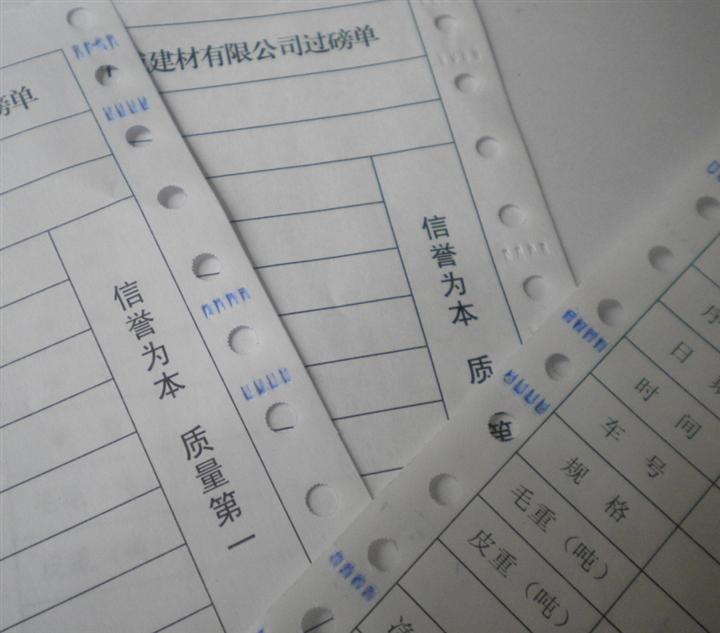 磅单
建材有限公司过磅单
信誉为本 质量第一
信誉为本 质
第
序
日期
时间
车号
规格
毛重（吨）
皮重（吨）
净